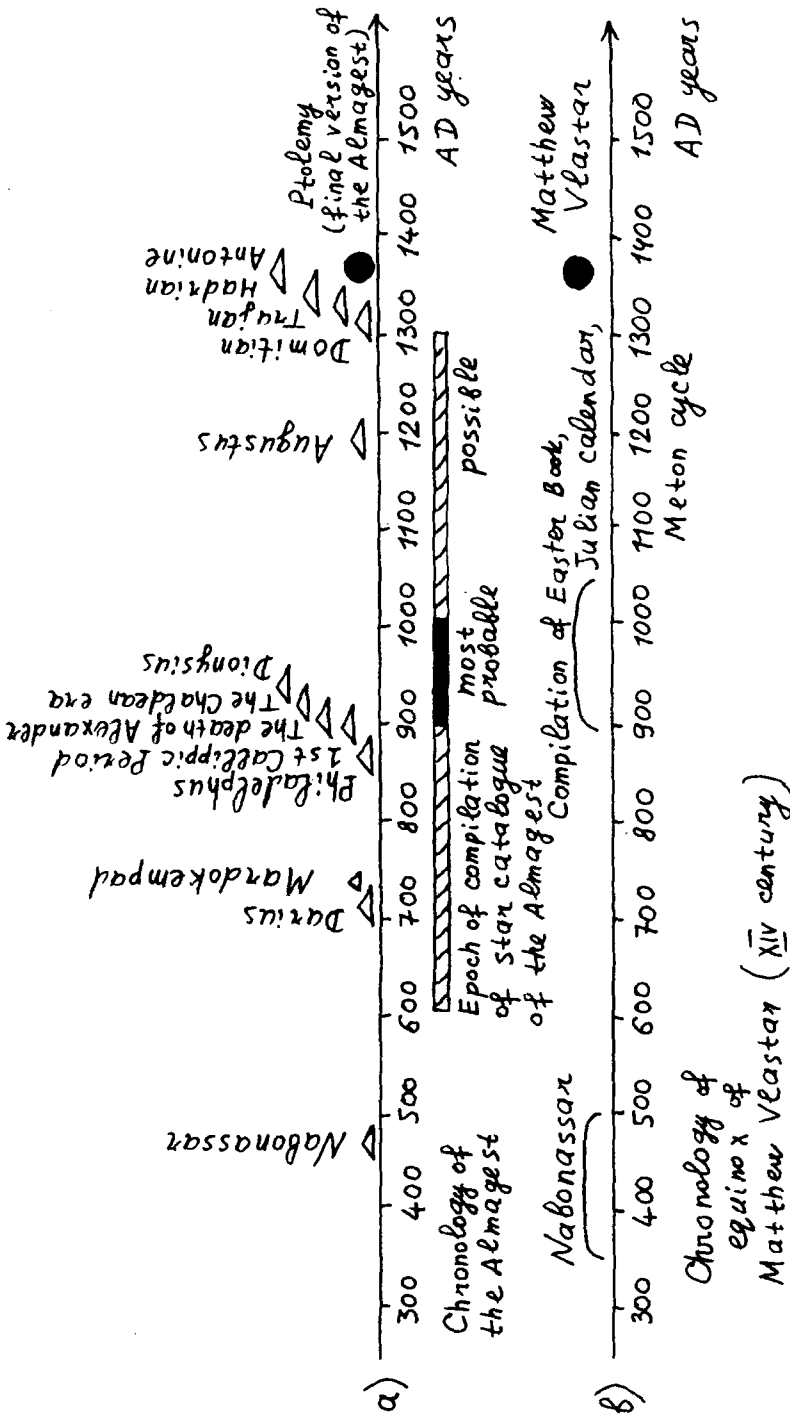 a)
Nabonassar
Darius
Mardokempad
Philadelphus
1st Callippic Period
The death of Alexander
The Chaldean era
Dionysius
Augustus
Domitian
Trajan
Hadrian
Antonine
Ptolemy
(final version of
the Almagest)
300 400 500 600 700 800 900 1000 1100 1200 1300 1400 1500
AD years
Chronology of
the Almagest
Epoch of compilation
of star catalogue
of the Almagest
most
probable
possible
b)
Nabonassar
Compilation of Easter Book,
Julian calendar,
Meton cycle
Matthew
Vlastar
300 400 500 600 700 800 900 1000 1100 1200 1300 1400 1500
AD years
Chronology of
equinox of
Matthew Vlastar (XIV century)